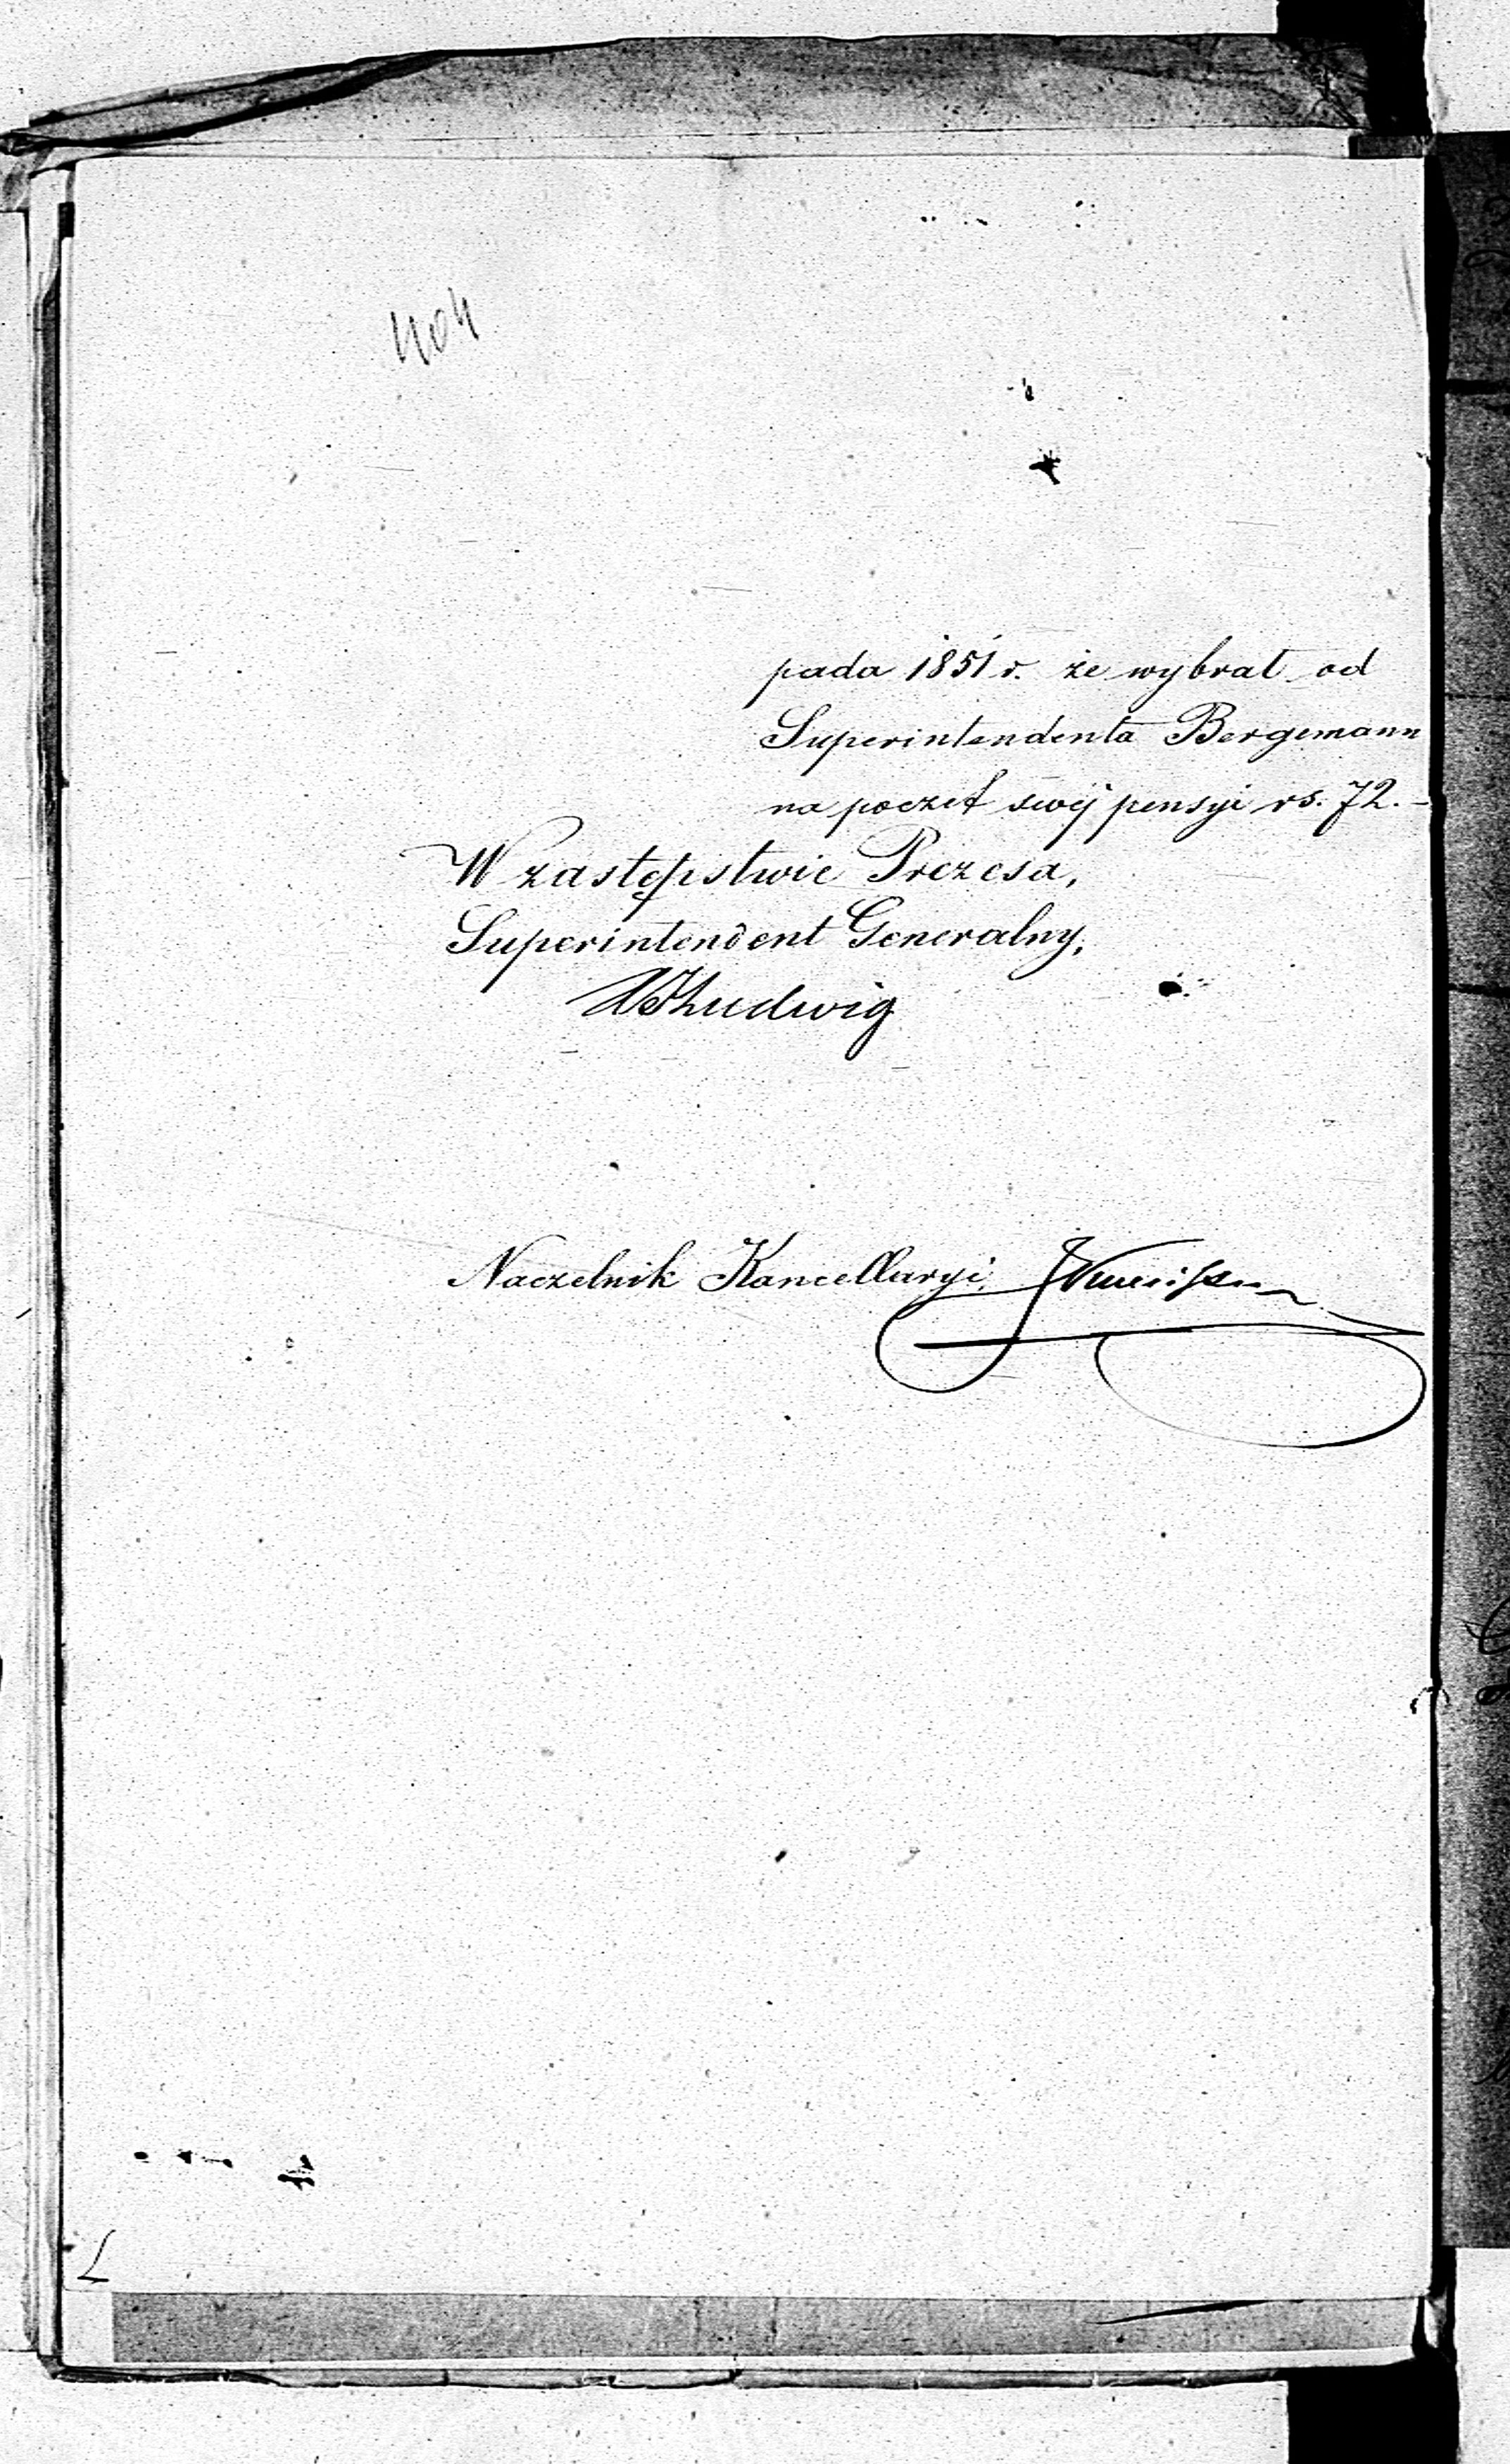 404
pada 1851 r. że wybrał od
Superintendenta Bergemann
na poczet swéj pensyi rs. 72.-
W zastępstwie Prezesa,
Superintendent Generalny,
Ludwig
Naczelnik Kancellaryi,